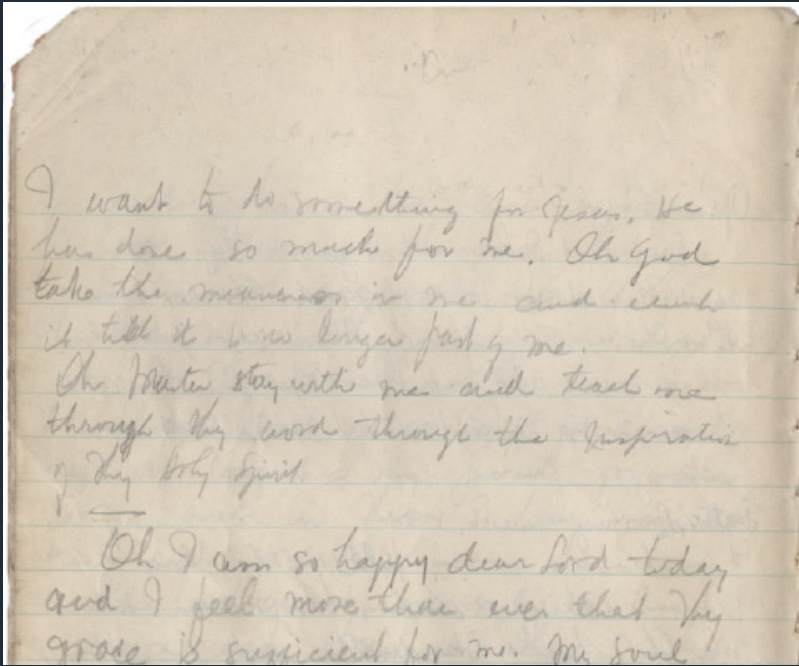 I want to do something for Jesus. He
has done so much for me. Oh God
take the meanness in me and crush
it till it is no longer part of me.
Oh Master stay with me and teach me
through Thy word through the Inspiration
of Thy Holy Spirit
Oh I am so happy dear Lord today
and I feel more than ever that Thy
grace is sufficient for me. My soul